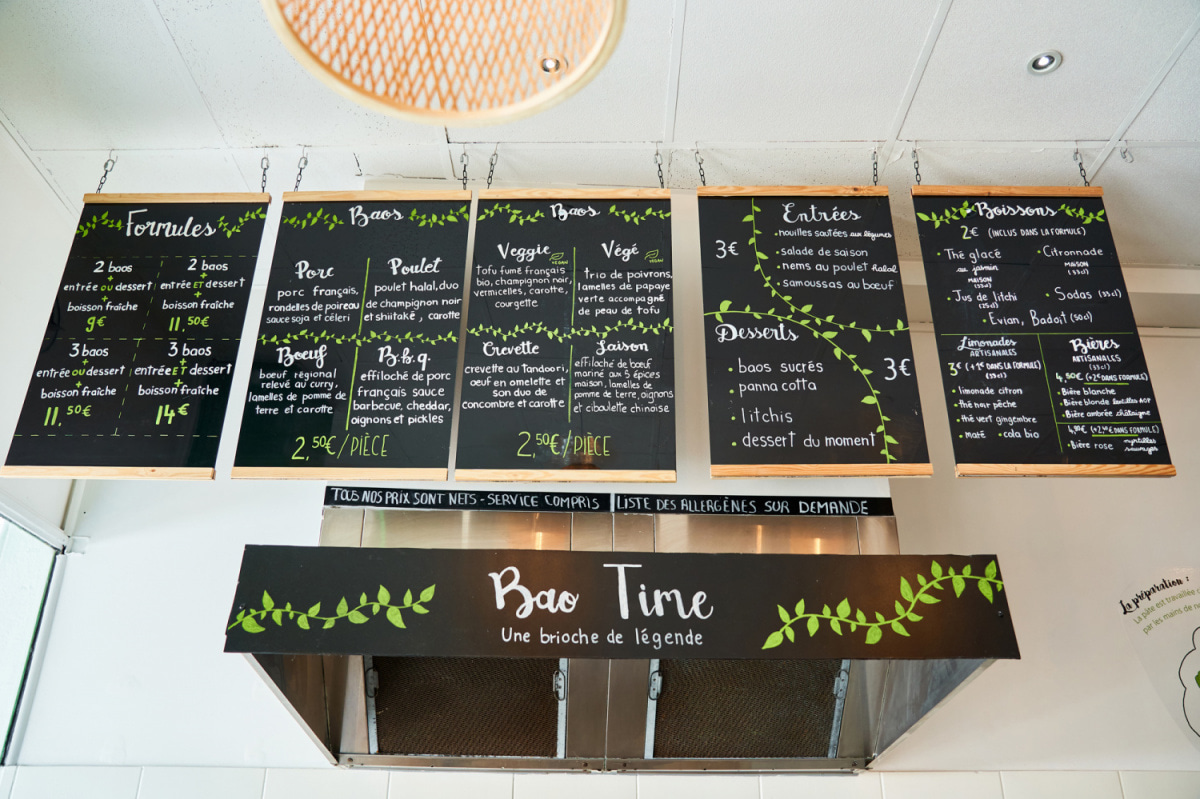 Formules
2 baos
+
entrée OU dessert
+
boisson fraîche
9€
2 baos
+
entrée ET dessert
+
boisson fraîche
11,50€
3 baos
+
entrée OU dessert
+
boisson fraîche
11,50€
3 baos
+
entrée ET dessert
+
boisson fraîche
14€
Baos
Porc
porc français,
rondelles de poireau
sauce soja et céleri
Poulet
poulet halal, duo
de champignon noir
et shiitaké, carotte
Boeuf
boeuf régional
relevé au curry,
lamelles de pomme de
terre et carotte
B.b.q
effiloché de porc
français sauce
barbecue, cheddar,
oignons et pickles
2,50€/PIÈCE
Baos
Veggie
VEGAN
Tofu fumé français
bio, champignon noir,
vermicelles, carotte,
courgette
Végé
VEGAN
Trio de poivrons,
lamelles de papaye
verte accompagné
de peau de tofu
Crevette
crevette au Tandoori,
oeuf en omelette et
son duo de
concombre et carotte
Saison
effiloché de boeuf
mariné aux 5 épices
maison, lamelles de
pomme de terre, oignons
et ciboulette chinoise
2,50€/PIÈCE
Entrées
3€
• nouilles sautées aux légumes
• salade de saison
• nems au poulet halal
• samoussas au boeuf
Desserts
3€
• baos sucrés
• panna cotta
• litchis
• dessert du moment
Boissons
2€ (INCLUS DANS LA FORMULE)
• Thé glacé
au jasmin
MAISON
(33cl)
• Citronnade
MAISON
(33cl)
• Jus de litchi
(25cl)
• Sodas (33cl)
• Evian, Badoit (50cl)
Limonades
ARTISANALES
3€ (+1€ DANS LA FORMULE)
• limonade citron
• thé noir pêche
• thé vert gingembre
• maté • cola bio
Bières
ARTISANALES
(33cl)
4,50€ (+2€ DANS FORMULE)
• Bière blanche
• Bière blonde lentilles AOP
• Bière ambrée châtaigne
4,90€ (+2,40€ DANS FORMULE)
• Bière rose myrtilles
sauvages
TOUS NOS PRIX SONT NETS - SERVICE COMPRIS
LISTE DES ALLERGÈNES SUR DEMANDE
Bao Time
Une brioche de légende
La préparation :
La pâte est travaillée
par les mains de